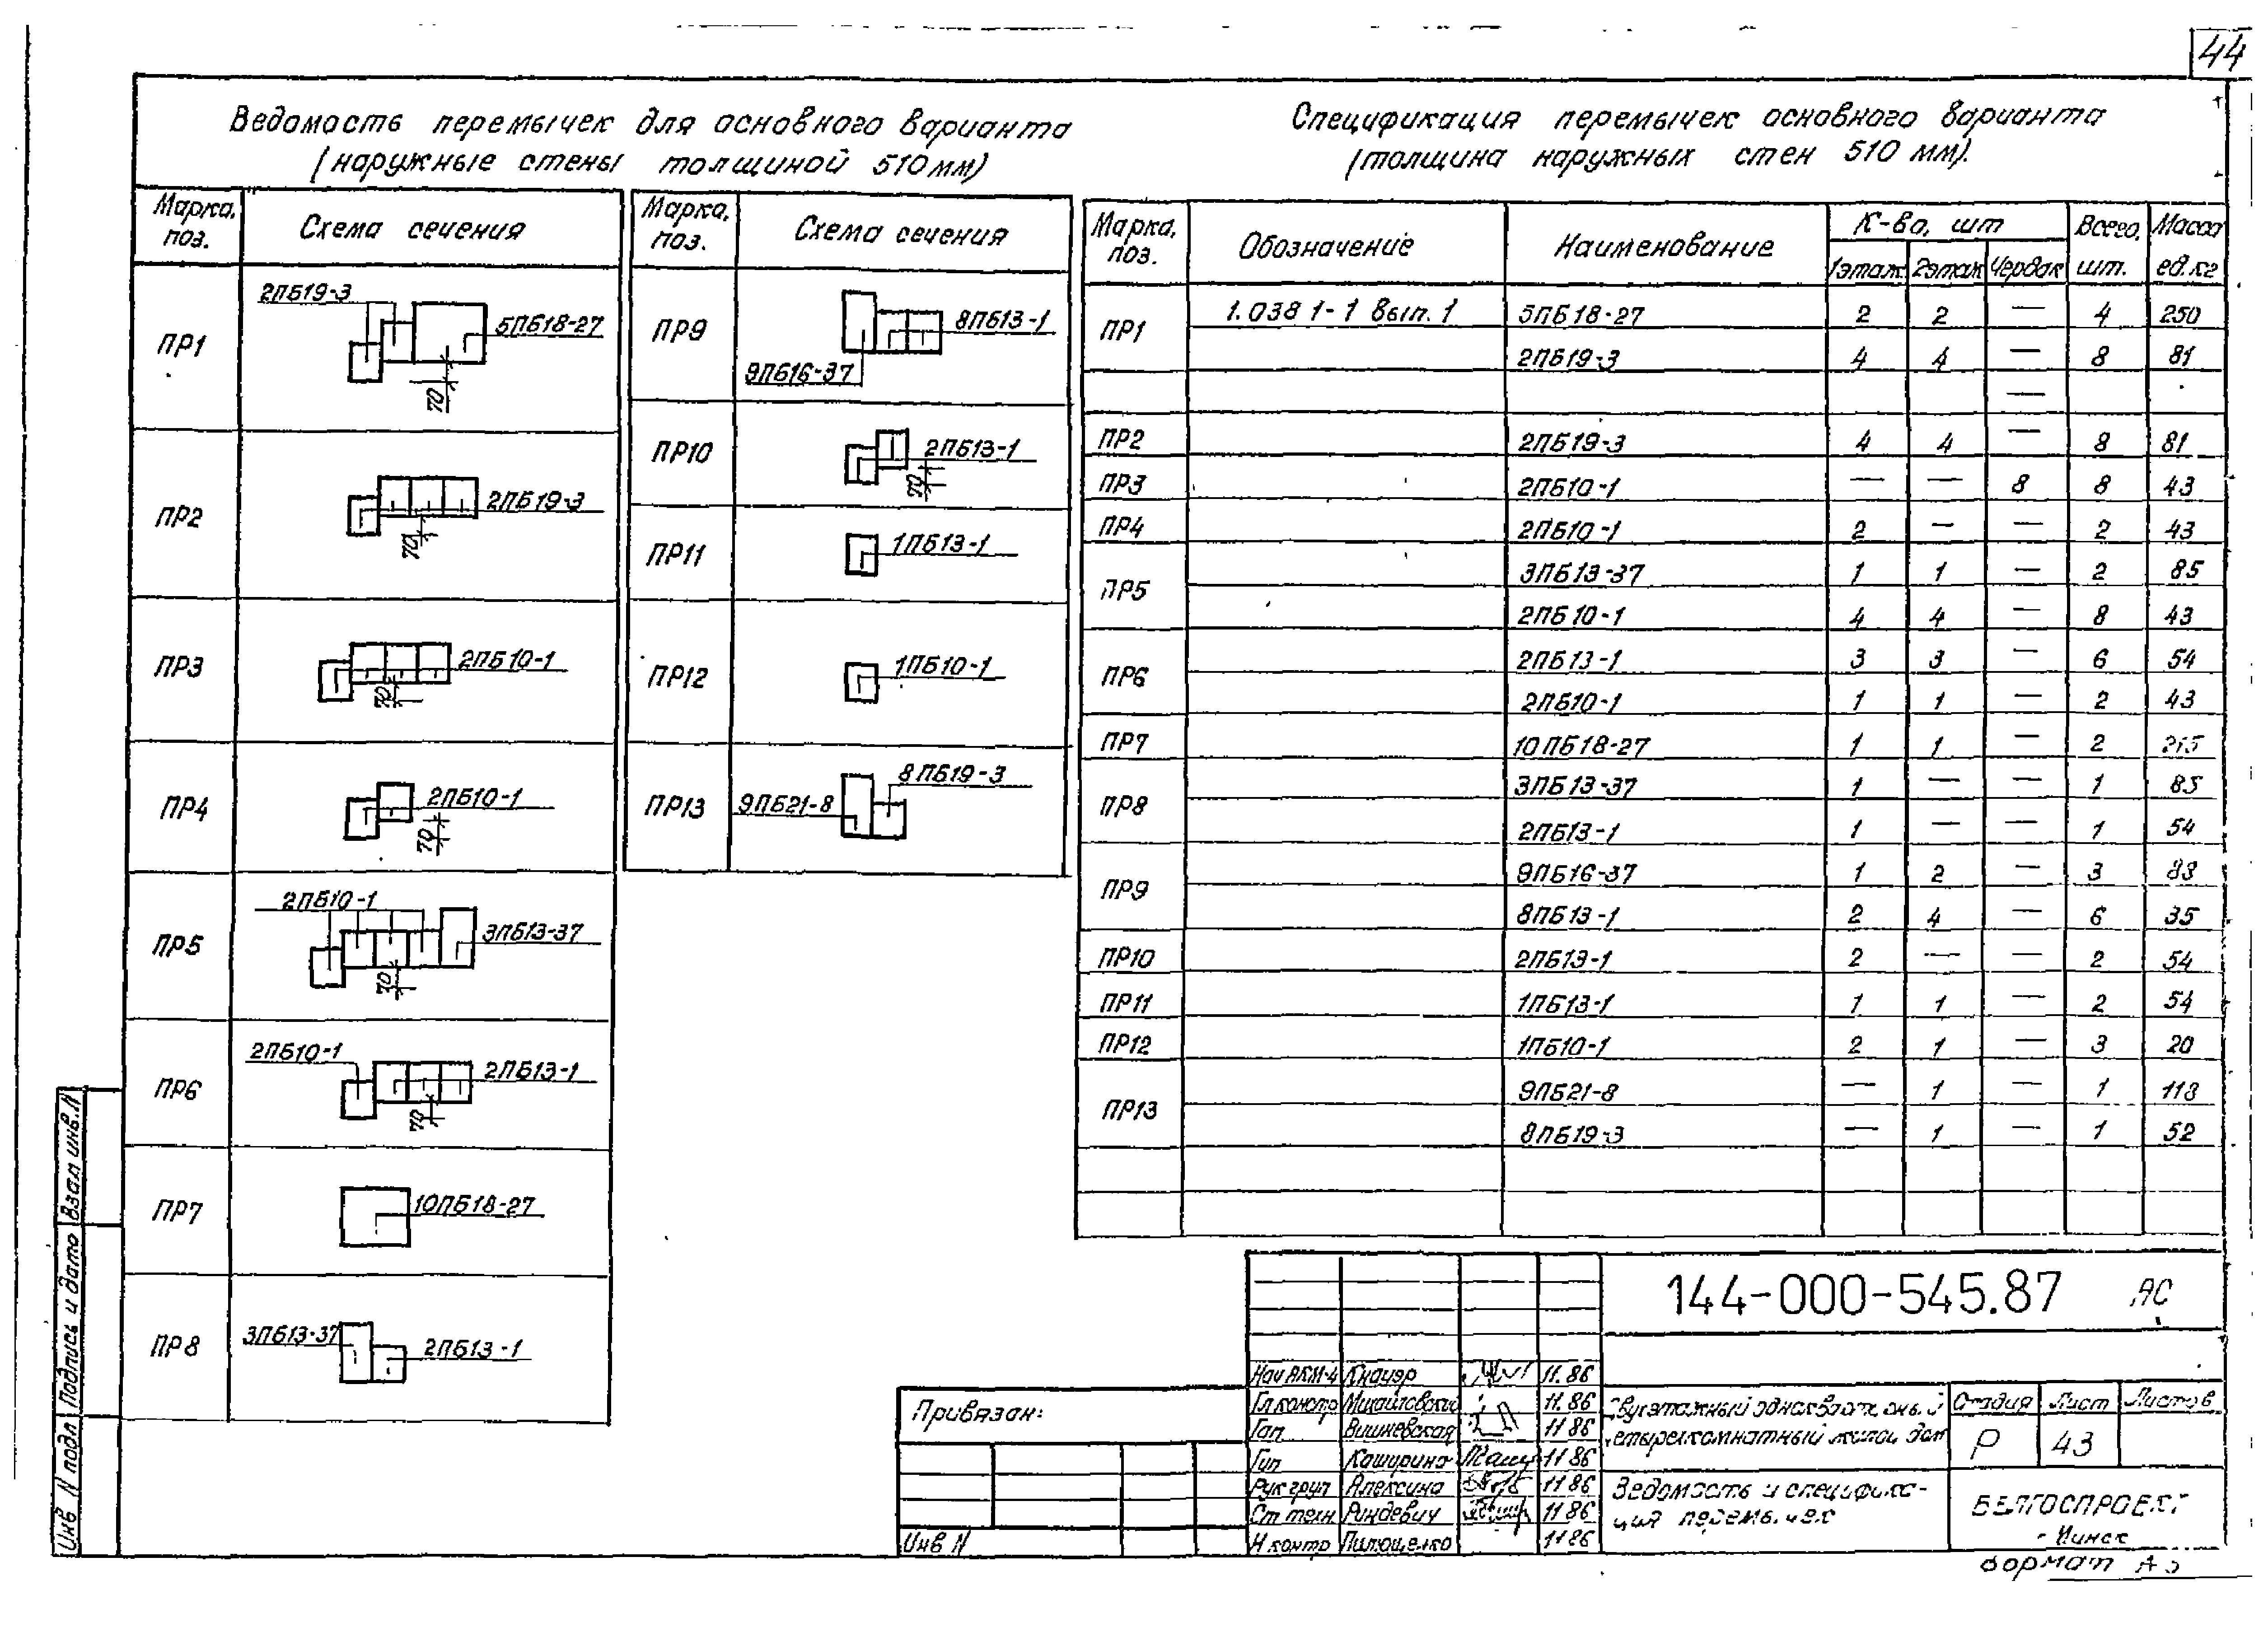 44
Ведомость перемычек для основного варианта
(наружные стены толщиной 510мм)
Марка, поз.
Схема сечения
ПР1
2ПБ19-3
5ПБ18-27
70
ПР2
2ПБ19-3
70
ПР3
2ПБ10-1
70
ПР4
2ПБ10-1
70
ПР5
2ПБ10-1
3ПБ13-37
70
ПР6
2ПБ10-1
2ПБ13-1
70
ПР7
10ПБ18-27
ПР8
3ПБ13-37
2ПБ13-1
Марка, поз.
Схема сечения
ПР9
8ПБ13-1
9ПБ16-37
ПР10
2ПБ13-1
70
ПР11
1ПБ13-1
ПР12
1ПБ10-1
ПР13
8ПБ19-3
9ПБ21-8
Спецификация перемычек основного варианта
(толщина наружных стен 510 мм).
Марка, поз. Обозначение Наименование К-во, шт Всего, шт. Масса ед.кг
1этаж 2этаж Чердак
ПР1 1.038 1-1 Вып. 1 5ПБ18-27 2 2 — 4 250
2ПБ19-3 4 4 — 8 81
—
ПР2 2ПБ19-3 4 4 — 8 81
ПР3 2ПБ10-1 — — 8 8 43
ПР4 2ПБ10-1 2 — — 2 43
ПР5 3ПБ13-37 1 1 — 2 85
2ПБ10-1 4 4 — 8 43
ПР6 2ПБ13-1 3 3 — 6 54
2ПБ10-1 1 1 — 2 43
ПР7 10ПБ18-27 1 1 — 2 215
ПР8 3ПБ13-37 1 — — 1 85
2ПБ13-1 1 — — 1 54
ПР9 9ПБ16-37 1 2 — 3 88
8ПБ13-1 2 4 — 6 35
ПР10 2ПБ13-1 2 — — 2 54
ПР11 1ПБ13-1 1 1 — 2 54
ПР12 1ПБ10-1 2 1 — 3 20
ПР13 9ПБ21-8 — 1 — 1 118
8ПБ19-3 — 1 — 1 52
144-000-545.87 АС
Нач АКМ-4 Кнауэр 11.86
Гл констр Михайловский 11.86
Гап Вишневская 11 86
Гип Кашурина 11 86
Рук груп Алексина 11 86
Ст техн Риндевич 11 86
Н контр Пилющенко 11 86
Двухэтажный одноквартирный
четырехкомнатный жилой дом
Стадия Лист Листов
Р 43
Ведомость и специфика-
ция перемычек
БЕЛГОСПРОЕКТ
г Минск
Формат А3
Привязан:
Инв N
Инв N подл
Подпись и дата
Взам инв. N